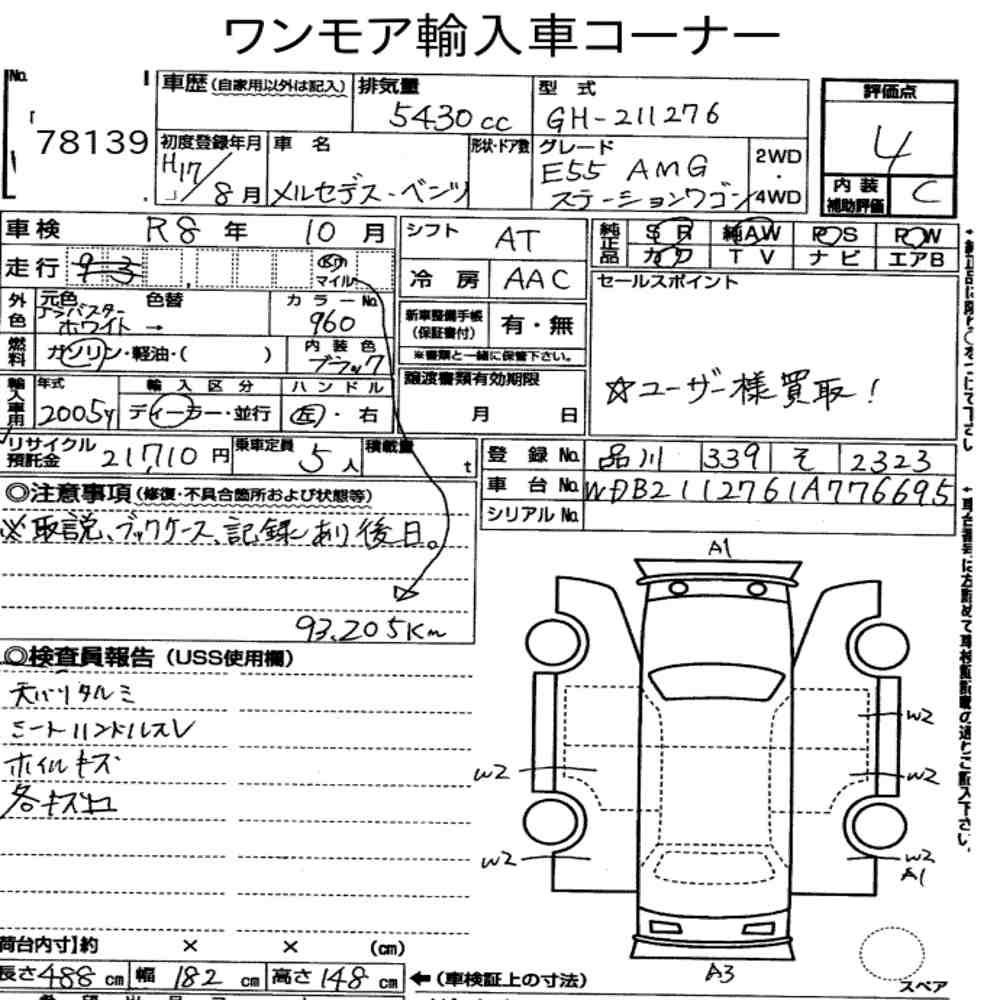 ワンモア輸入車コーナー
No.
78139
車歴(自家用以外は記入)
排気量
5430cc
型式
GH-211276
評価点
4
内装補助評価
C
初度登録年月
H17/8月
車名
メルセデス・ベンツ
形状・ドア数
グレード
E55 AMG
ステーションワゴン
2WD・4WD
車検 R8年 10月
走行 93
km
マイル
外色
元色
アラバスターホワイト →
色替
カラーNo.
960
燃料
ガソリン・軽油・( )
内装色
ブラック
輸入車用
年式
2005y
輸入区分
ディーラー・並行
ハンドル
左・右
リサイクル預託金 21,710円
乗車定員 5人
積載量 t
シフト AT
冷房 AAC
新車整備手帳(保証書付) 有・無
※書類と一緒に保管下さい。
譲渡書類有効期限
月 日
純正品
SR 純AW PS PW
カワ TV ナビ エアB
セールスポイント
☆ユーザー様買取!
登録No. 品川 339 そ 2323
車台No. WDB2112761A776695
シリアルNo.
◎注意事項(修復・不具合箇所および状態等)
※取説、ブックケース、記録簿あり後日。
93,205Km
◎検査員報告(USS使用欄)
天バリタルミ
シートハンドルスレ
ホイルキズ
各キズ凹
A1
W2
W2
W2
W2
W2
A1
A3
スペア
荷台内寸】約 × × (cm)
長さ488cm 幅182cm 高さ148cm ←(車検証上の寸法)
車台番号は左詰めで車検証記載の通りご記入下さい。